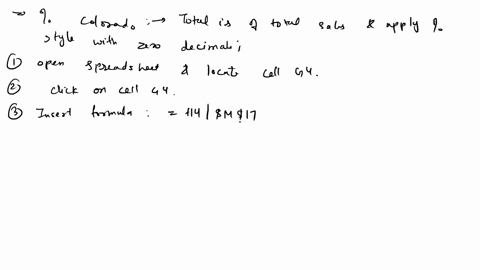 → % Colorado :→ Total is of total sales & apply %
style with zero decimal;
① open spreadsheet & locate cell G4.
② click on cell G4.
③ Insert formula : = H4 / $M$17